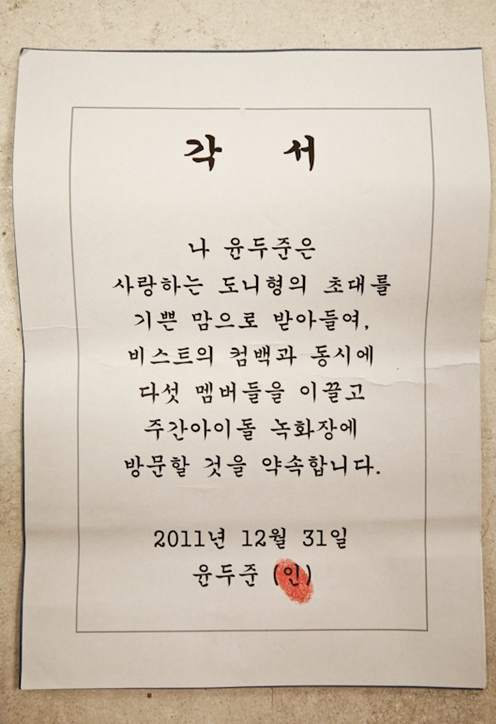 각 서
나 윤두준은
사랑하는 도니형의 초대를
기쁜 맘으로 받아들여,
비스트의 컴백과 동시에
다섯 멤버들을 이끌고
주간아이돌 녹화장에
방문할 것을 약속합니다.
2011년 12월 31일
윤두준 (인)